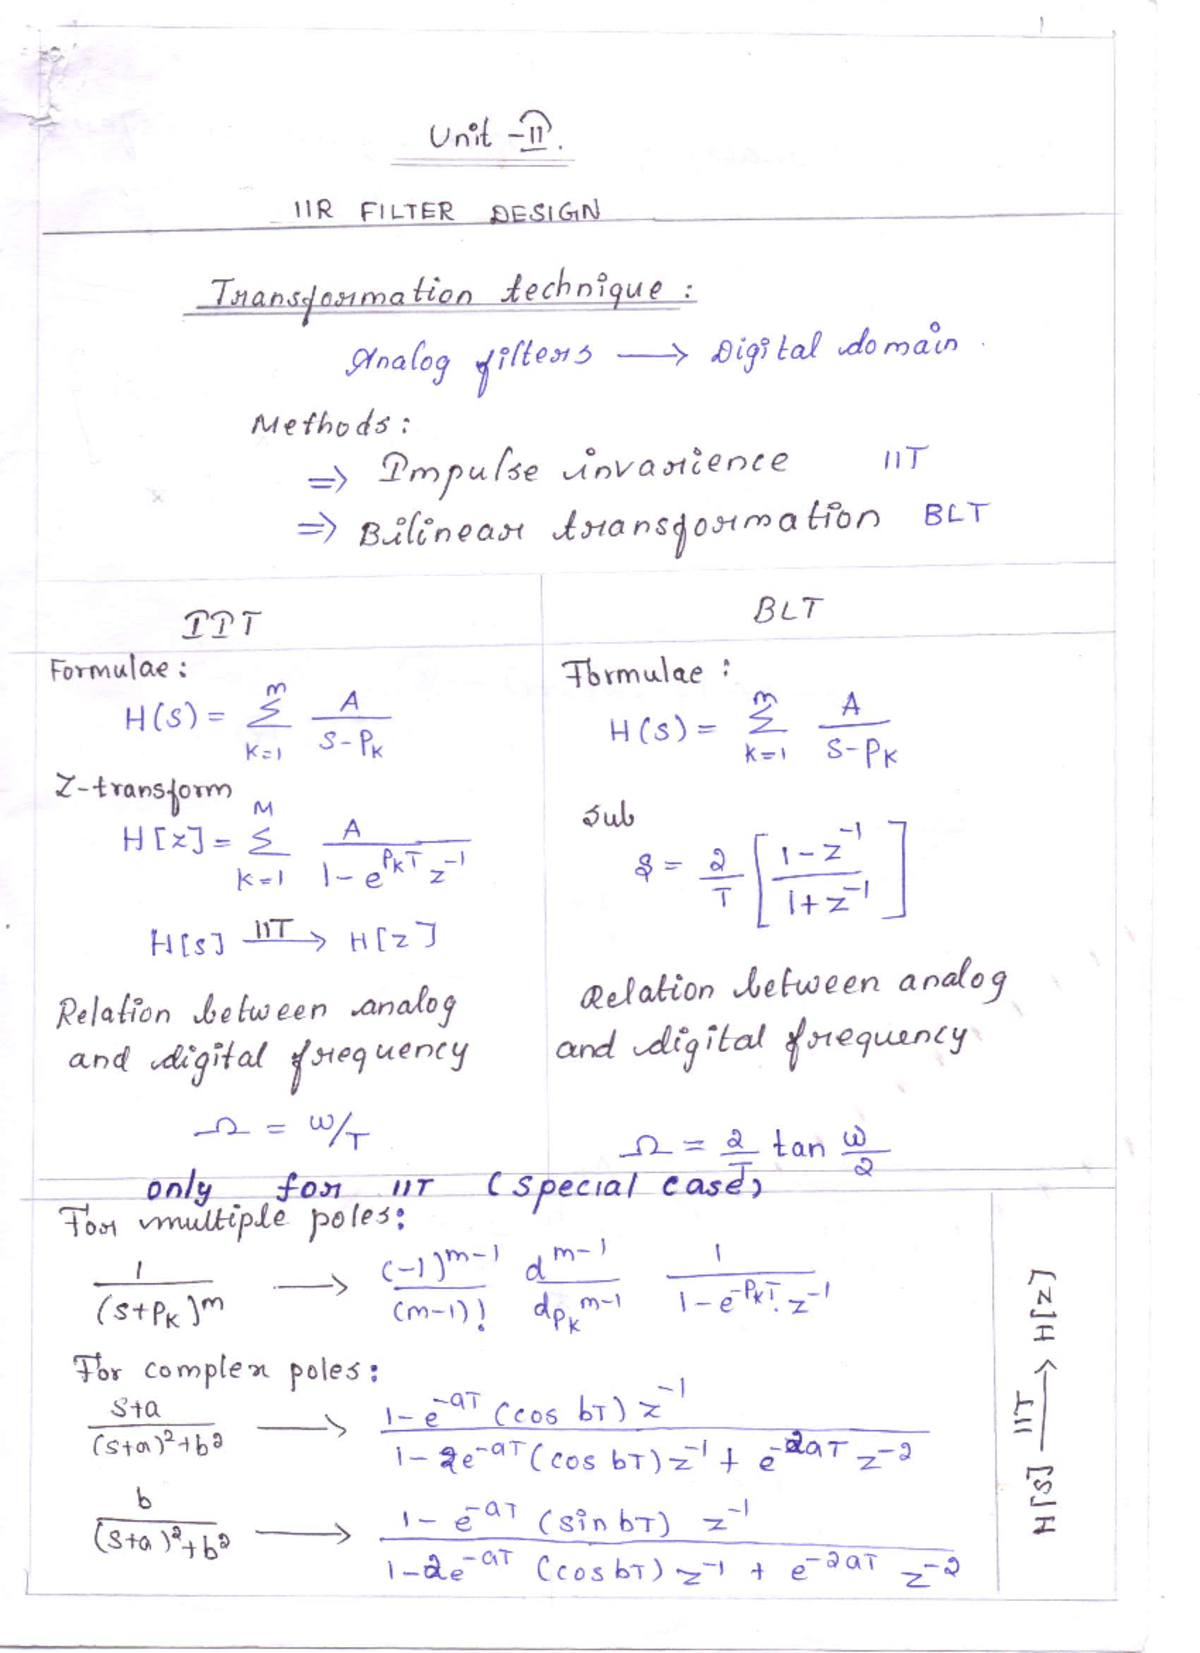 1
Unit -II.
IIR FILTER DESIGN
Transformation technique:
Analog filters → Digital domain.
Methods:
⇒ Impulse invarience IIT
⇒ Bilinear transformation BLT
IIT
Formulae:
H(s) = m Σ k=1 A / s-Pk
Z-transform
H[z] = M Σ k=1 A / 1-e^PkT z^-1
H[s] IIT → H[z]
Relation between analog
and digital frequency
Ω = ω/T
BLT
Formulae:
H(s) = m Σ k=1 A / s-Pk
Sub
s = 2/T [1-z^-1 / 1+z^-1]
Relation between analog
and digital frequency
Ω = 2/T tan ω/2
only for IIT (special case)
For multiple poles:
1/(s+Pk)^m → (-1)^m-1/(m-1)! d^m-1/dPk^m-1 1/1-e^-PkT.z^-1
For complex poles:
s+a/(s+a)^2+b^2 → 1-e^-aT (cos bT) z^-1 / 1-2e^-aT (cos bT) z^-1 + e^-2aT z^-2
b/(s+a)^2+b^2 → 1-e^-aT (sin bT) z^-1 / 1-2e^-aT (cos bT) z^-1 + e^-2aT z^-2
H[s] IIT → H[z]